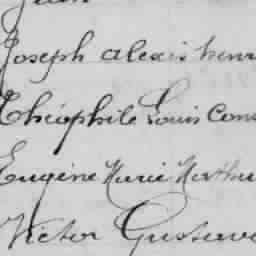 Joseph Alexis Henri
Théophile Louis Cons
Eugène Marie
Victor Gustave